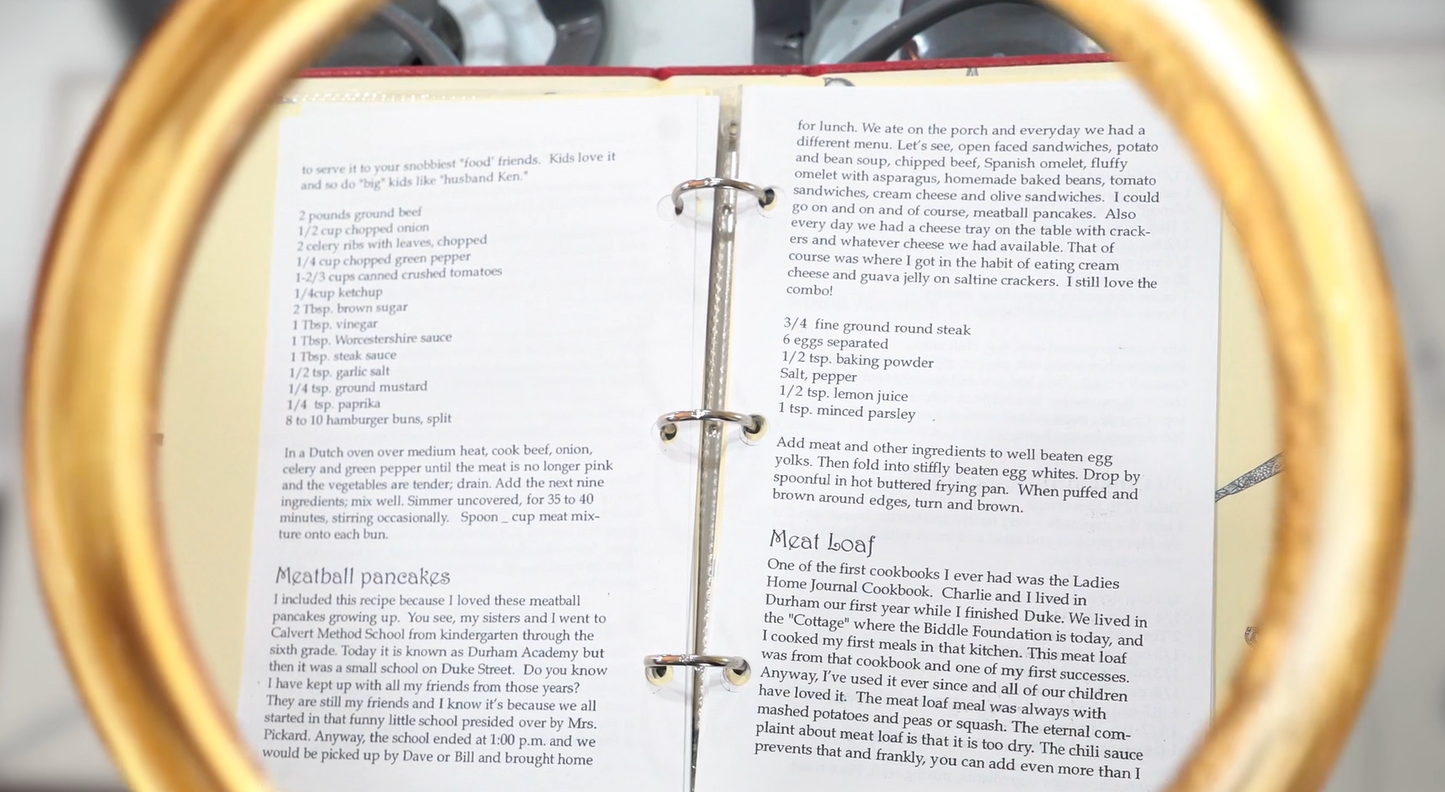 to serve it to your snobbiest "food' friends.  Kids love it
and so do "big" kids like "husband Ken."
2 pounds ground beef
1/2 cup chopped onion
2 celery ribs with leaves, chopped
1/4 cup chopped green pepper
1-2/3 cups canned crushed tomatoes
1/4cup ketchup
2 Tbsp. brown sugar
1 Tbsp. vinegar
1 Tbsp. Worcestershire sauce
1 Tbsp. steak sauce
1/2 tsp. garlic salt
1/4 tsp. ground mustard
1/4  tsp. paprika
8 to 10 hamburger buns, split
In a Dutch oven over medium heat, cook beef, onion,
celery and green pepper until the meat is no longer pink
and the vegetables are tender; drain. Add the next nine
ingredients; mix well. Simmer uncovered, for 35 to 40
minutes, stirring occasionally.   Spoon _ cup meat mix-
ture onto each bun.
Meatball pancakes
I included this recipe because I loved these meatball
pancakes growing up.  You see, my sisters and I went to
Calvert Method School from kindergarten through the
sixth grade. Today it is known as Durham Academy but
then it was a small school on Duke Street.  Do you know
I have kept up with all my friends from those years?
They are still my friends and I know it's because we all
started in that funny little school presided over by Mrs.
Pickard. Anyway, the school ended at 1:00 p.m. and we
would be picked up by Dave or Bill and brought home
for lunch. We ate on the porch and everyday we had a
different menu. Let's see, open faced sandwiches, potato
and bean soup, chipped beef, Spanish omelet, fluffy
omelet with asparagus, homemade baked beans, tomato
sandwiches, cream cheese and olive sandwiches.  I could
go on and on and of course, meatball pancakes.  Also
every day we had a cheese tray on the table with crack-
ers and whatever cheese we had available. That of
course was where I got in the habit of eating cream
cheese and guava jelly on saltine crackers.  I still love the
combo!
3/4  fine ground round steak
6 eggs separated
1/2 tsp. baking powder
Salt, pepper
1/2 tsp. lemon juice
1 tsp. minced parsley
Add meat and other ingredients to well beaten egg
yolks. Then fold into stiffly beaten egg whites. Drop by
spoonful in hot buttered frying pan.  When puffed and
brown around edges, turn and brown.
Meat Loaf
One of the first cookbooks I ever had was the Ladies
Home Journal Cookbook.  Charlie and I lived in
Durham our first year while I finished Duke. We lived in
the "Cottage" where the Biddle Foundation is today, and
I cooked my first meals in that kitchen. This meat loaf
was from that cookbook and one of my first successes.
Anyway, I've used it ever since and all of our children
have loved it.  The meat loaf meal was always with
mashed potatoes and peas or squash. The eternal com-
plaint about meat loaf is that it is too dry. The chili sauce
prevents that and frankly, you can add even more than I